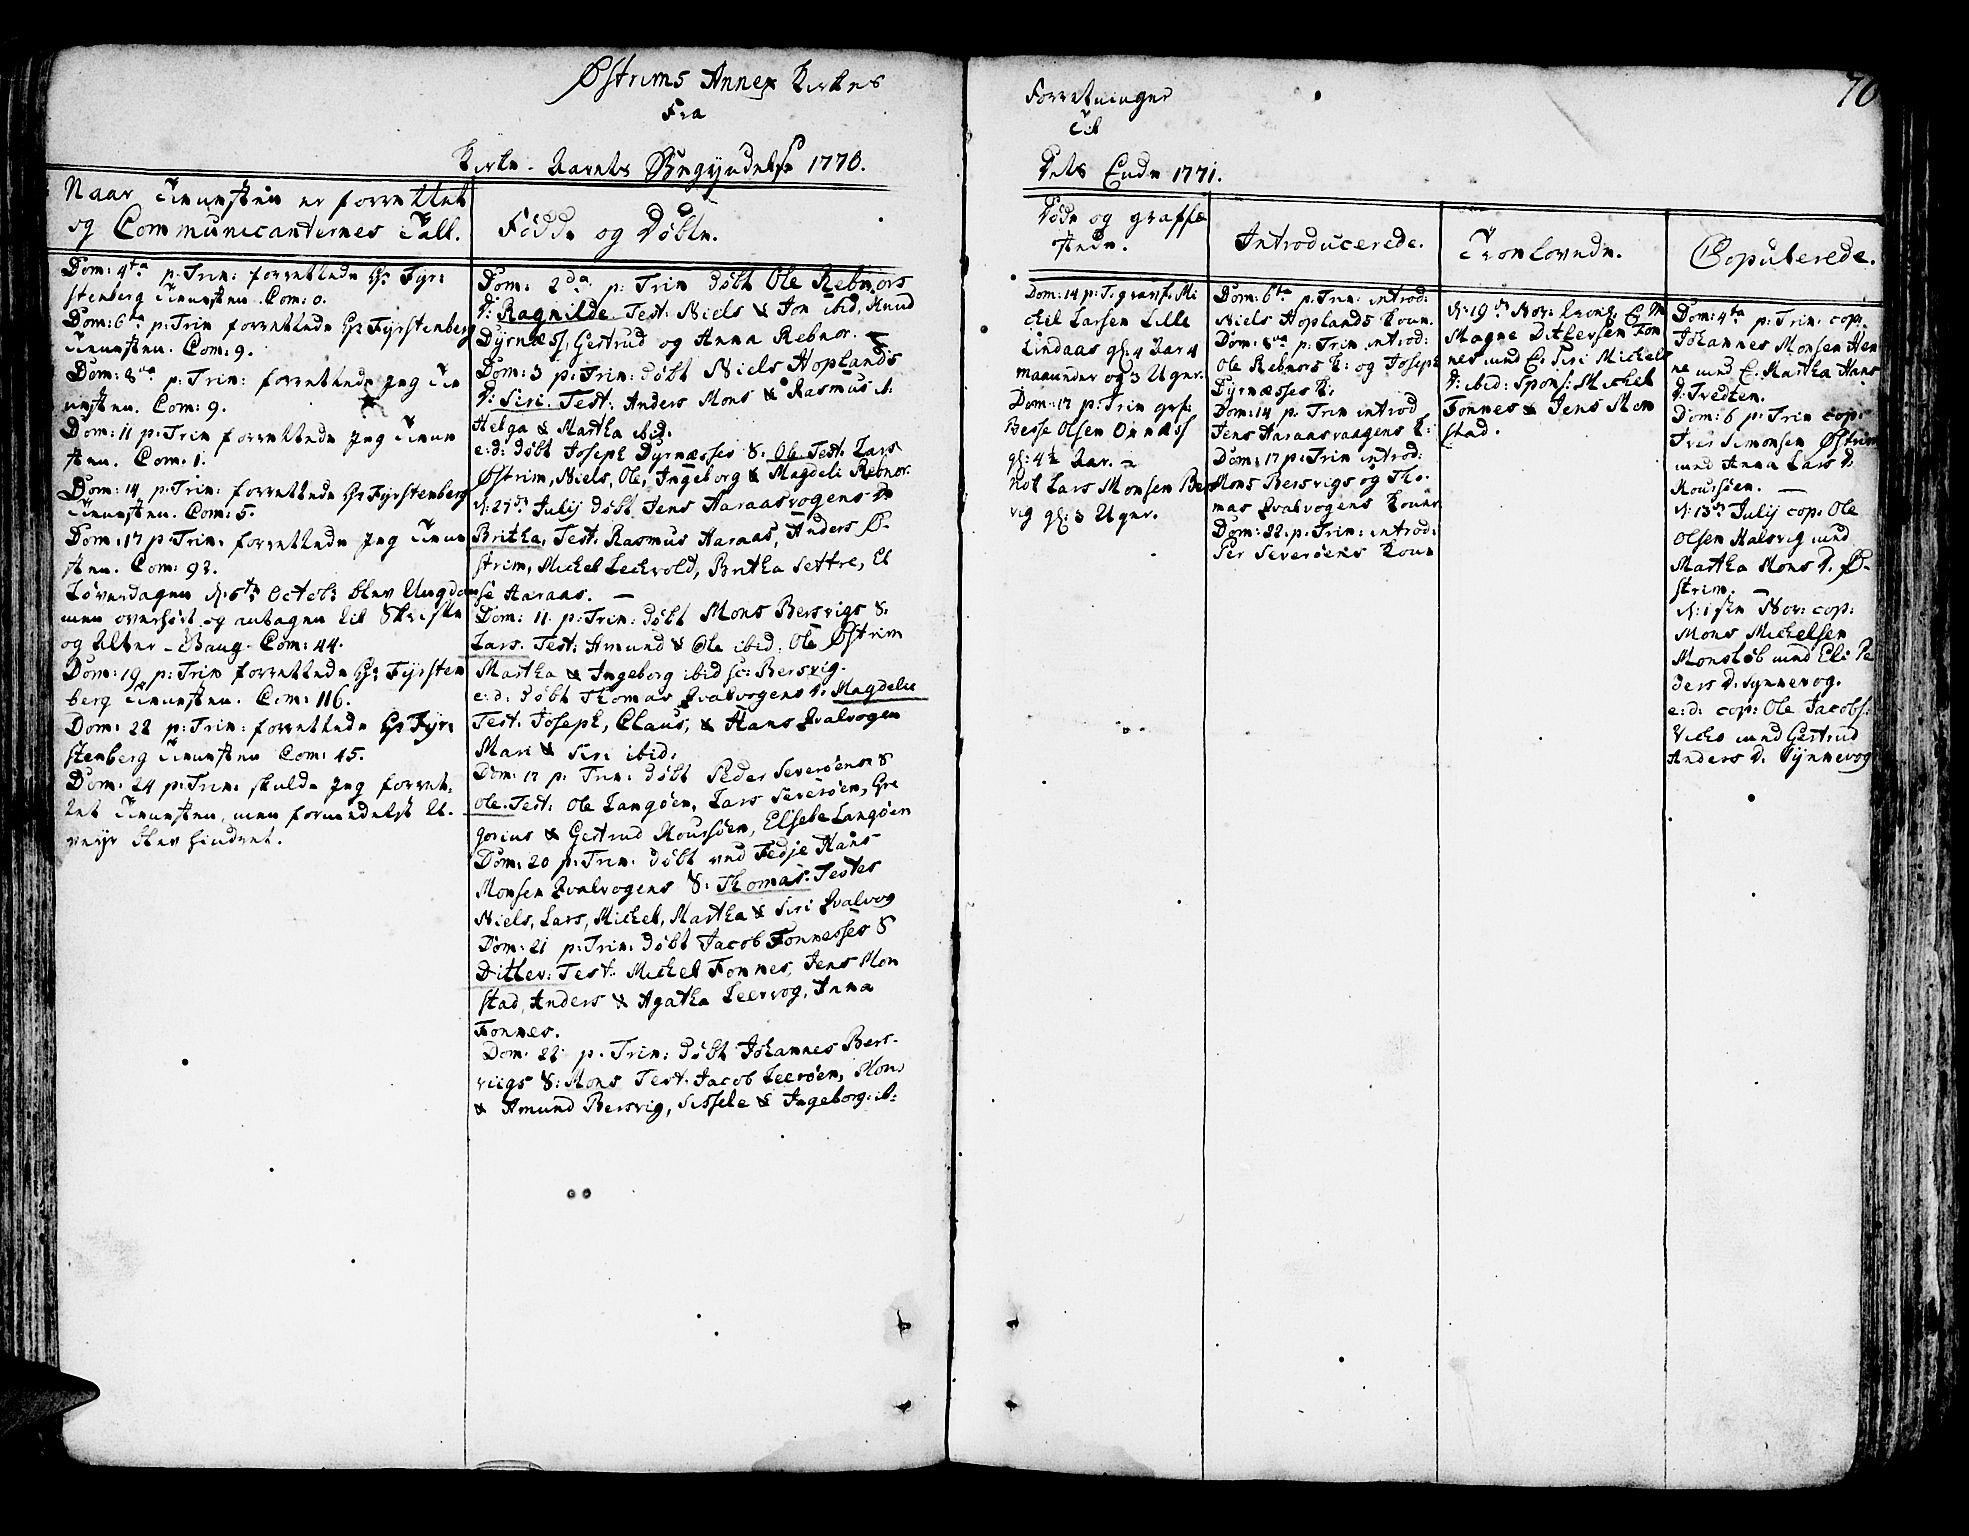 Østrems Annex Kirkes
Fra
Kirke-Aarets Begyndelse 1770.
Naar Tienesten er forrettet
og Communicanternes Tall.
Dom: 4ta p: Trin: forrettede Hr Fyr:
stenberg Tienesten. Com: 0.
Dom: 6ta p: Trin forrettede Hr Fyrstenberg
Tienesten. Com: 9.
Dom: 8va p: Trin: forrettede Jeg Tie
nesten. Com: 9.
Dom: 11 p: Trin forrettede Jeg Tiene
sten. Com: 1.
Dom: 14 p: Trin: forrettede Hr Fyrstenberg
Tienesten. Com: 5.
Dom: 17 p: Trin: forrettede Jeg Tiene
sten. Com: 92.
Løverdagen d: 6te Octob: blev Ungdom
men overhørt og antagen til Skrifte
og Alter-Gang. Com: 44.
Dom: 19 p: Trin forrettede Hr Fyrsten
berg Tienesten. Com: 116.
Dom: 22 p: Trin: forrettede Hr Fyr:
stenberg Tienesten Com: 45.
Dom: 24 p: Trin: skulde Jeg forret:
tet Tienesten, men formedelst U-
veyr blev hindret.
Fødde og Døbte.
Dom: 2da p: Trin døbt Ole Rebnors
D: Ragnilde. Test: Niels & Jon ibid, Knud
Dyrnæss, Gertrud og Anna Rebnor.
Dom: 3 p: Trin: døbt Niels Hoplands
D: Siri. Test: Anders Mons & Rasmus i:
Helga & Martha ibid.
e:d: døbt Joseph Dyrnæsses S: Ole Test. Lars
Østrim, Niels, Ole, Ingeborg & Magdeli Rebnor.
d: 27de Julij døbt Jens Haraasvogens D
Britha, Test. Rasmus Haraas, Anders Ø-
strim, Michel Leckvold, Britha Settre, El
se Haraas. —
Dom: 11 p: Trin: døbt Mons Bersvigs S:
Lars. Test: Amund & Ole ibid: Ole Østrim
Martha & Ingeborg ibid sc: Bersvig.
e:d: døbt Thomas Qvalvogens D: Magdelie
Test: Joseph, Claus, & Hans Qvalvogen
Mari & Siri ibid:
Dom: 17 p: Trin: døbt Peder Severøens S
Ole. Test: Ole Langøen, Lars Severøen, Gre
gorius & Gertrud Roussøen, Elsebe Langøen
Dom: 20 p: Trin: døbt ved Fedje Hans
Monsen Qvalvogens S: Thomas: Testes
Niels, Lars, Michel, Martha & Siri Qvalvog
Dom: 21 p: Trin: døbt Jacob Fonnesses S
Ditlev: Test: Michel Fonnes, Jens Mon
stad, Anders & Agatha Leervog, Anna
Fonnes.
Dom: 22 p: Trin: døbt Johannes Bers-
viigs S: Mons Test: Jacob Leerøen, Mons
& Amund Bersvig, Sissele & Ingeborg: ib:
Forretninger
Til
Dets Ende 1771.
70
Døde og graffæ
stede.
Dom: 14 p: T: græsf. Mi
chel Larsen Lille
Lindaas gl: 4 Aar 4
maaneder og 3 Uger.
Dom: 17 p: Trin græf:
Besse Olsen Onnæss
gl: 4½ Aar. —
Not Lars Monsen Bers
vig gl: 3 Uger.
Introducerede.
Dom: 6ta p: Trin: introd:
Niels Hoplands Kone.
Dom: 8va p: Trin introd:
Ole Rebnors K: og Joseph
Dyrnæsses K:
Dom: 14 p: Trin introd
Jens Haraasvaagens K:
Dom: 17 p: Trin introd:
Mons Bersvigs og Tho:
mas Qvalvogens Koner
Dom: 22. p: Trin: introd:
Per Severøens Kone
Trolovede.
d: 19de Nov: trol: C: M
Magne Ditlefsen Fon
nes med C: Siri Michels
D: ibid: Spons: Michel
Fonnes & Jens Mon
stad.
Copulerede.
Dom: 4ta p: Trin: cop:
Johannes Monsen Hen
ne med C: Martha Hans
D: Tvedten.
Dom: 6 p: Trin cop:
Iver Simonsen Østrim
med Anna Lars D:
Roussøen. —
d: 13de Julij cop: Ole
Olsen Halsvig med
Martha Mons D. Ø-
strim. —
d: 1ste Nov: cop:
Mons Michelsen
Monsløb med Eli Pe
ders D: Synnevog.
e:d: cop: Ole Jacobs:
Vicho med Gertrud
Anders D. Synnevog